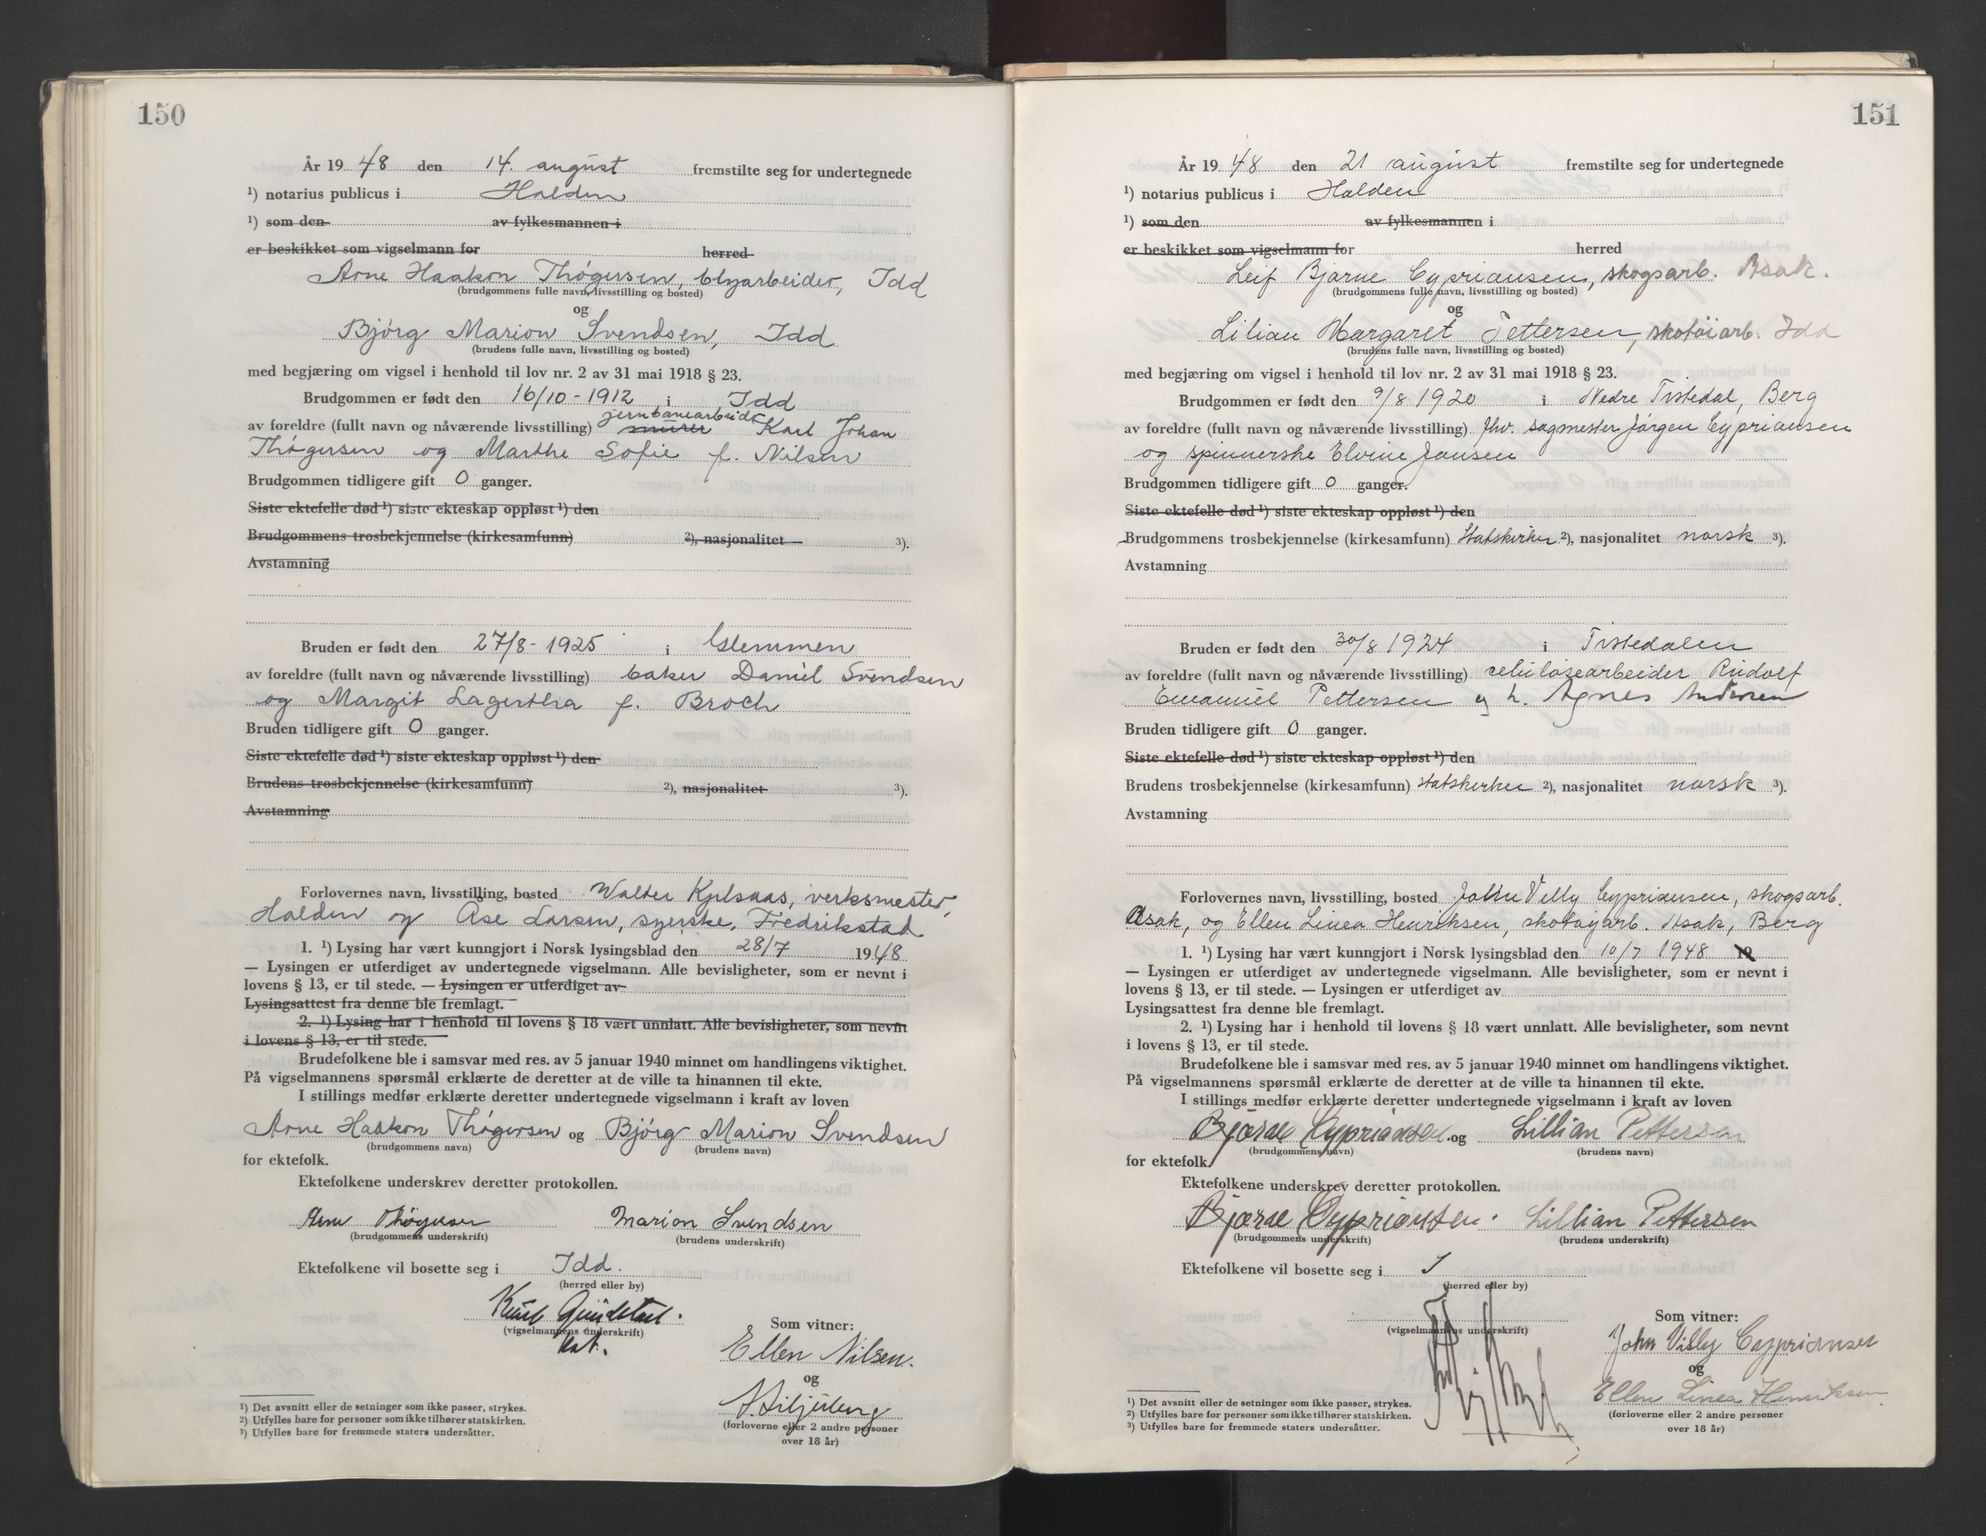 150
År 19 48 den 14. august fremstilte seg for undertegnede
¹) notarius publicus i Halden
¹) som den av fylkesmannen i
er beskikket som vigselmann for herred
Arne Haakon Thøgersen, Idd
(brudgommens fulle navn, livsstilling og bosted)
og
Bjørg Marion Svendsen, Idd
(brudens fulle navn, livsstilling og bosted)
med begjæring om vigsel i henhold til lov nr. 2 av 31 mai 1918 § 23.
Brudgommen er født den 16/10-1912 i Idd
jernbanearbeider
av foreldre (fullt navn og nåværende livsstilling) murer Karl Johan
Thøgersen og Marthe Sofie f. Nilsen
Brudgommen tidligere gift 0 ganger.
Siste ektefelle død ¹) siste ekteskap oppløst ¹) den
Brudgommens trosbekjennelse (kirkesamfunn) ²), nasjonalitet ³).
Avstamning
Bruden er født den 27/8-1925 i Glemmen
av foreldre (fullt navn og nåværende livsstilling) baker Daniel Svendsen
og Margit Lagertha f. Broch
Bruden tidligere gift 0 ganger.
Siste ektefelle død ¹) siste ekteskap oppløst ¹) den
Brudens trosbekjennelse (kirkesamfunn) ²), nasjonalitet ³).
Avstamning
Forlovernes navn, livsstilling, bosted Walter Kjølsaas, verksmester,
Halden og Åse Larsen, syerske, Fredrikstad
1. ¹) Lysing har vært kunngjort i Norsk lysingsblad den 28/7 1948
— Lysingen er utferdiget av undertegnede vigselmann. Alle bevisligheter, som er nevnt i
lovens § 13, er til stede. — Lysingen er utferdiget av
Lysingsattest fra denne ble fremlagt.
2. ¹) Lysing har i henhold til lovens § 18 vært unnlatt. Alle bevisligheter, som nevnt
i lovens § 13, er til stede.
Brudefolkene ble i samsvar med res. av 5 januar 1940 minnet om handlingens viktighet.
På vigselmannens spørsmål erklærte de deretter at de ville ta hinannen til ekte.
I stillings medfør erklærte deretter undertegnede vigselmann i kraft av loven
Arne Haakon Thøgersen og Bjørg Marion Svendsen
(brudgommens navn) (brudens navn)
for ektefolk.
Ektefolkene underskrev deretter protokollen.
Arne Thøgersen Marion Svendsen
(brudgommens underskrift) (brudens underskrift)
Ektefolkene vil bosette seg i Idd.
(herred eller by)
(vigselmannens underskrift)
Som vitner:
Ellen Nilsen.
og
(forloverne eller 2 andre personer
over 18 år)
¹) Det avsnitt eller de setninger som ikke passer, strykes.
²) Utfylles bare for personer som ikke tilhører statskirken.
³) Utfylles bare for fremmede staters undersåtter.
151
År 19 48 den 21 august fremstilte seg for undertegnede
¹) notarius publicus i Halden
¹) som den av fylkesmannen i
er beskikket som vigselmann for herred
Leif Bjarne Cypriansen, skogsarb. Asak.
(brudgommens fulle navn, livsstilling og bosted)
og
Lilian Margaret Pettersen, skotøiarb. Idd
(brudens fulle navn, livsstilling og bosted)
med begjæring om vigsel i henhold til lov nr. 2 av 31 mai 1918 § 23.
Brudgommen er født den 9/8 1920 i Nedre Tistedal, Berg
av foreldre (fullt navn og nåværende livsstilling) fhv. sagmester Jørgen Cypriansen
og spinnerske Elvine Jansen
Brudgommen tidligere gift 0 ganger.
Siste ektefelle død ¹) siste ekteskap oppløst ¹) den
Brudgommens trosbekjennelse (kirkesamfunn) Statskirken ²), nasjonalitet norsk ³).
Avstamning
Bruden er født den 30/8 1924 i Tistedalen
av foreldre (fullt navn og nåværende livsstilling) celulosearbeider Rudolf
Emanuel Pettersen og h. Agnes Andersen
Bruden tidligere gift 0 ganger.
Siste ektefelle død ¹) siste ekteskap oppløst ¹) den
Brudens trosbekjennelse (kirkesamfunn) Statskirken ²), nasjonalitet norsk ³).
Avstamning
Forlovernes navn, livsstilling, bosted John Villy Cypriansen, skogsarb.
Asak, og Ellen Linea Henriksen, skotøyarb. Asak, Berg
1. ¹) Lysing har vært kunngjort i Norsk lysingsblad den 10/7 1948 19
— Lysingen er utferdiget av undertegnede vigselmann. Alle bevisligheter, som er nevnt i
lovens § 13, er til stede. — Lysingen er utferdiget av
Lysingsattest fra denne ble fremlagt.
2. ¹) Lysing har i henhold til lovens § 18 vært unnlatt. Alle bevisligheter, som nevnt
i lovens § 13, er til stede.
Brudefolkene ble i samsvar med res. av 5 januar 1940 minnet om handlingens viktighet.
På vigselmannens spørsmål erklærte de deretter at de ville ta hinannen til ekte.
I stillings medfør erklærte deretter undertegnede vigselmann i kraft av loven
Bjarne Cypriansen og Lillian Pettersen
(brudgommens navn) (brudens navn)
for ektefolk.
Ektefolkene underskrev deretter protokollen.
Bjarne Cypriansen. Lillian Pettersen
(brudgommens underskrift) (brudens underskrift)
Ektefolkene vil bosette seg i
(herred eller by)
(vigselmannens underskrift)
Som vitner:
John Villy Cypriansen
og
Ellen Linea Henriksen
(forloverne eller 2 andre personer
over 18 år)
¹) Det avsnitt eller de setninger som ikke passer, strykes.
²) Utfylles bare for personer som ikke tilhører statskirken.
³) Utfylles bare for fremmede staters undersåtter.